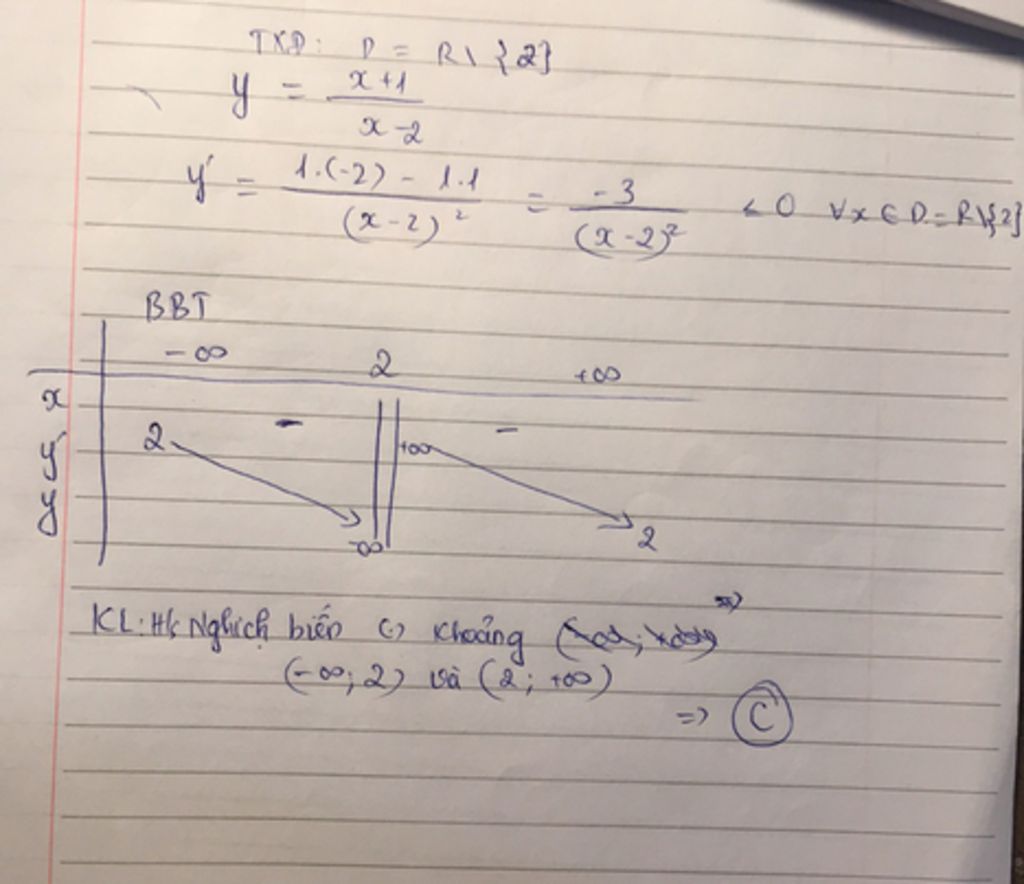 TXĐ: D = R\ {2}
y = x+1 / x-2
y' = 1.(-2) - 1.1 / (x-2)² = -3 / (x-2)² < 0 ∀x ∈ D = R\{2}
BBT
x -∞ 2 +∞
y' - -
y 2 -∞ +∞ 2
KL: Hs Nghịch biến khoảng =>
(-∞; 2) và (2; +∞)
=> C